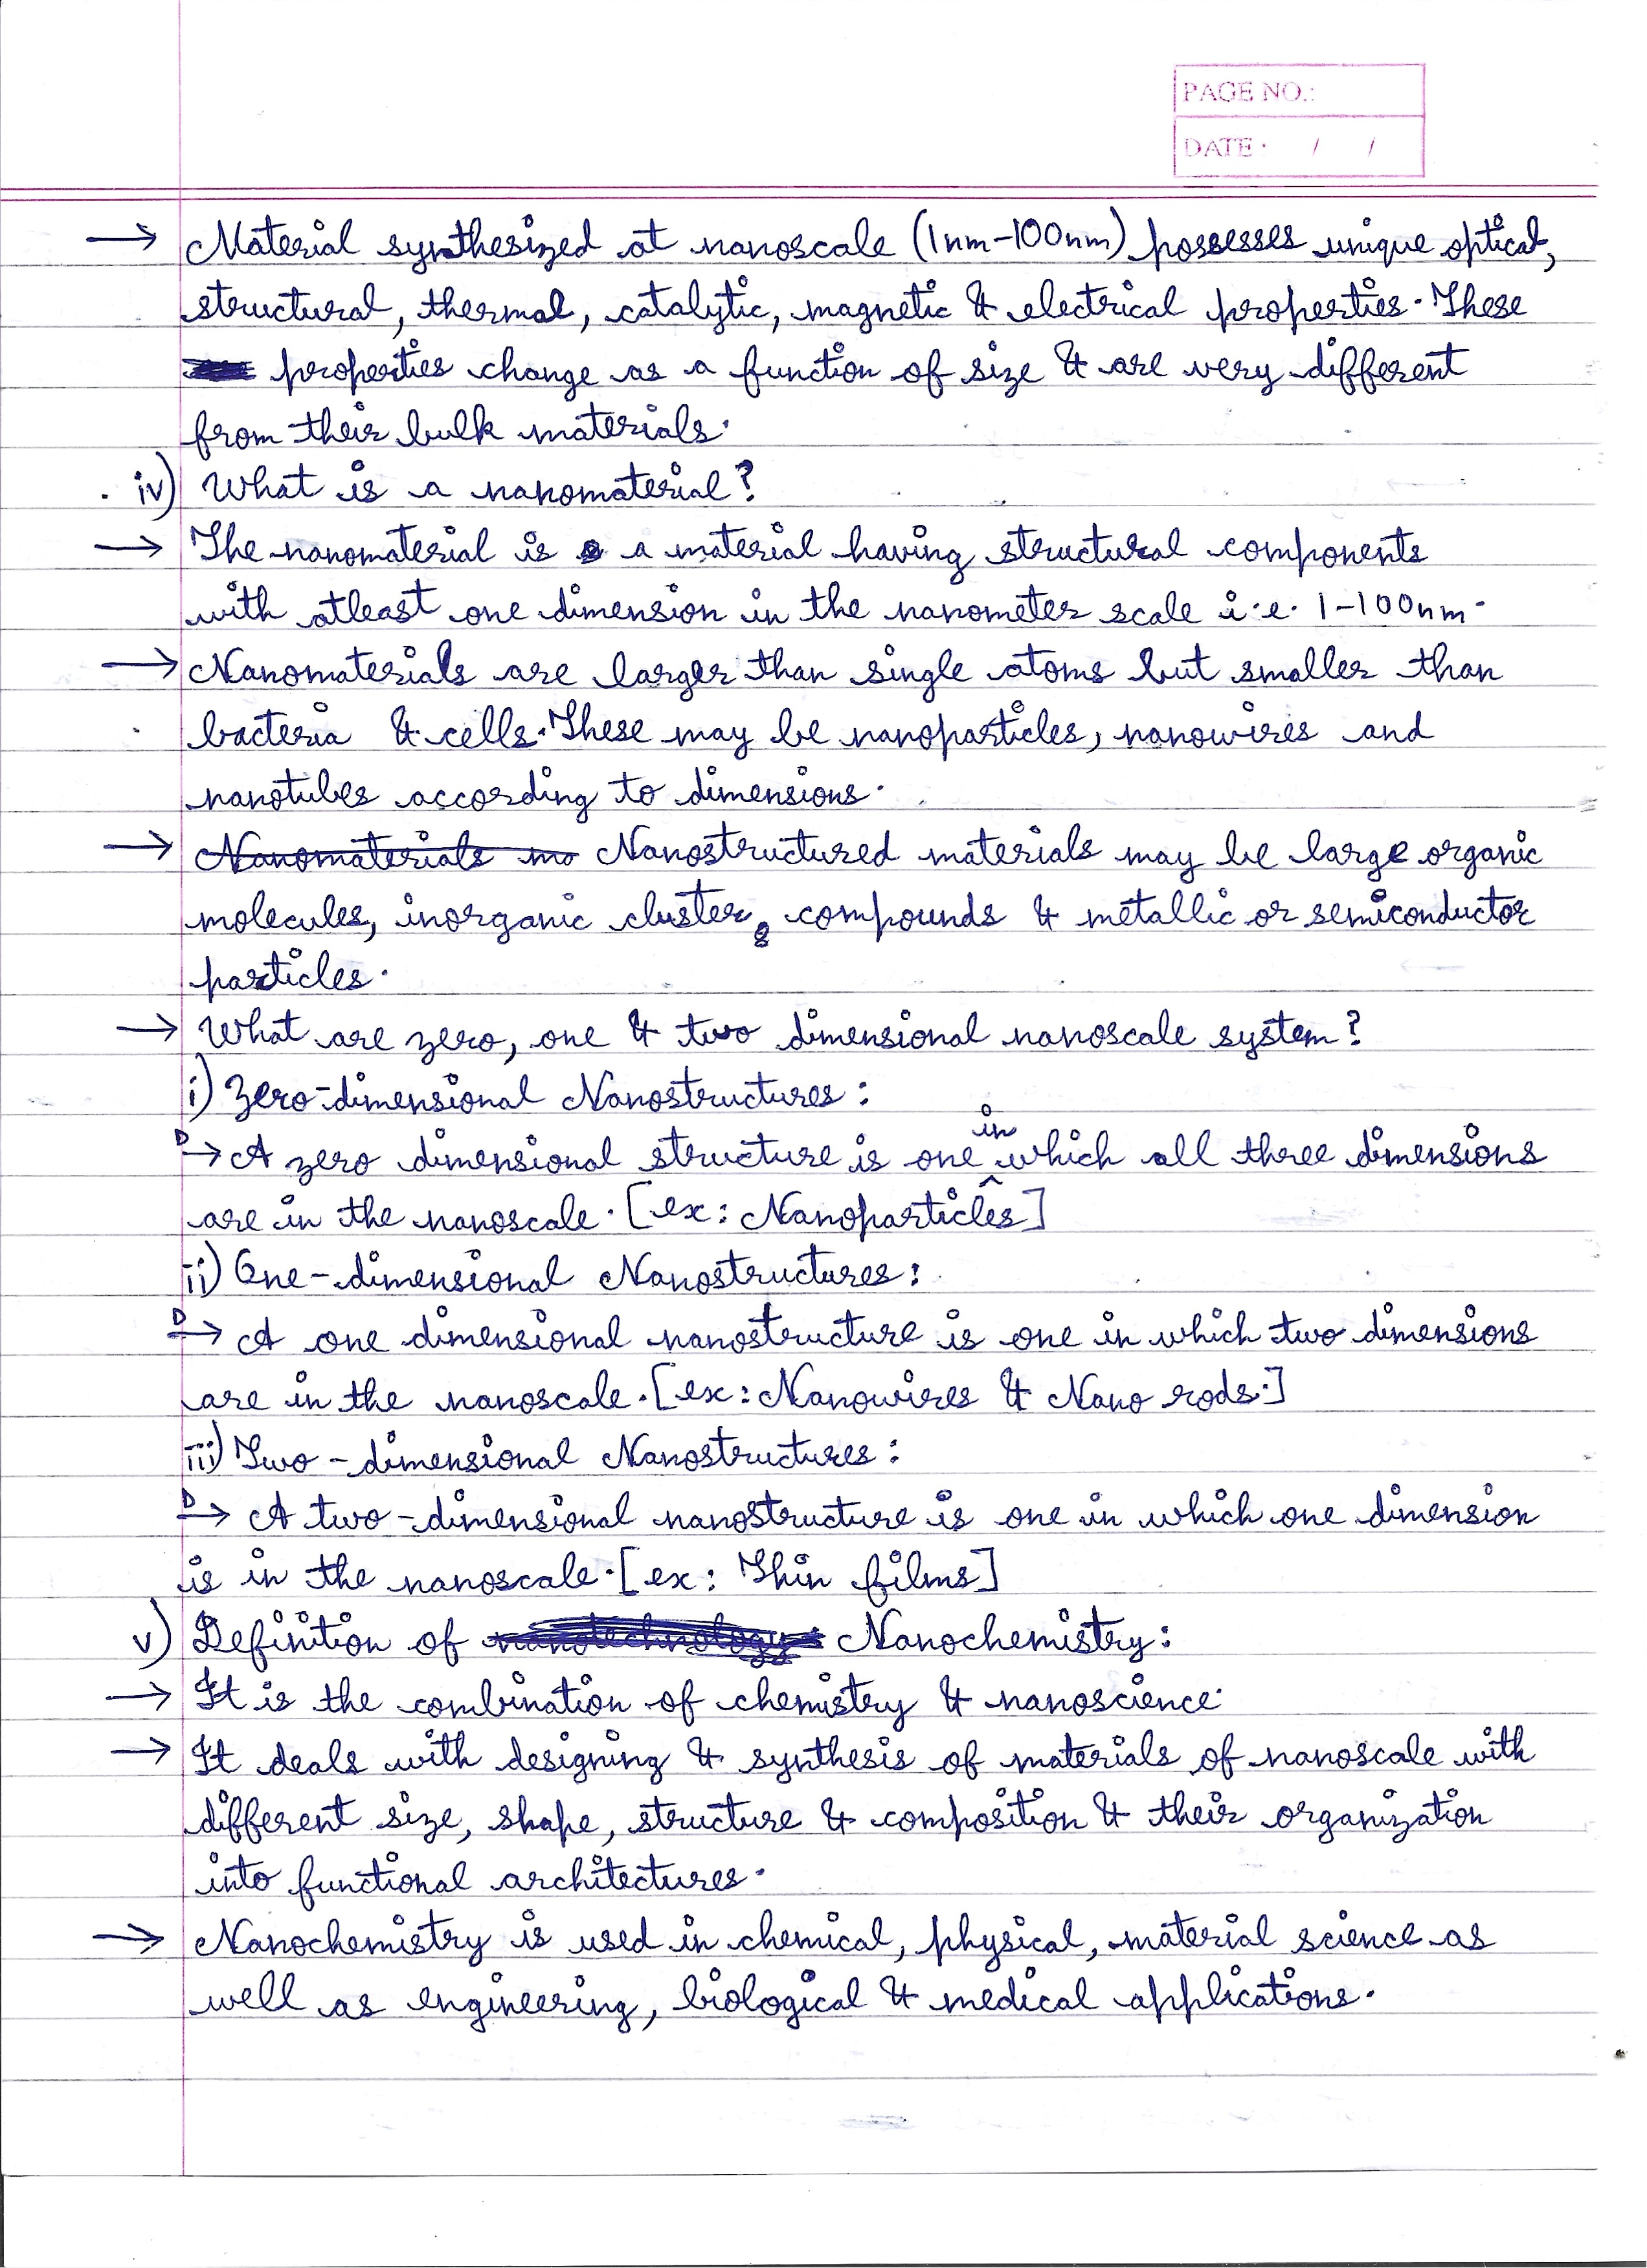 PAGE NO.:
DATE: / /
→ Material synthesized at nanoscale (1nm-100nm) possesses unique optical,
structural, thermal, catalytic, magnetic & electrical properties. These
properties change as a function of size & are very different
from their bulk materials.
iv) What is a nanomaterial?
→ The nanomaterial is a material having structural components
with atleast one dimension in the nanometer scale i.e. 1-100nm.
→ Nanomaterials are larger than single atoms but smaller than
bacteria & cells. These may be nanoparticles, nanowires and
nanotubes according to dimensions.
→ Nanomaterials ma Nanostructured materials may be large organic
molecules, inorganic clusters, compounds & metallic or semiconductor
particles.
→ What are zero, one & two dimensional nanoscale system?
i) Zero-dimensional Nanostructures:
D→ A zero dimensional structure is one in which all three dimensions
are in the nanoscale. [ex: Nanoparticles]
ii) One-dimensional Nanostructures:
D→ A one dimensional nanostructure is one in which two dimensions
are in the nanoscale. [ex: Nanowires & Nano rods.]
iii) Two-dimensional Nanostructures:
D→ A two-dimensional nanostructure is one in which one dimension
is in the nanoscale. [ex: Thin films]
v) Definition of nanotechnology: Nanochemistry:
→ It is the combination of chemistry & nanoscience.
→ It deals with designing & synthesis of materials of nanoscale with
different size, shape, structure & composition & their organization
into functional architectures.
→ Nanochemistry is used in chemical, physical, material science as
well as engineering, biological & medical applications.